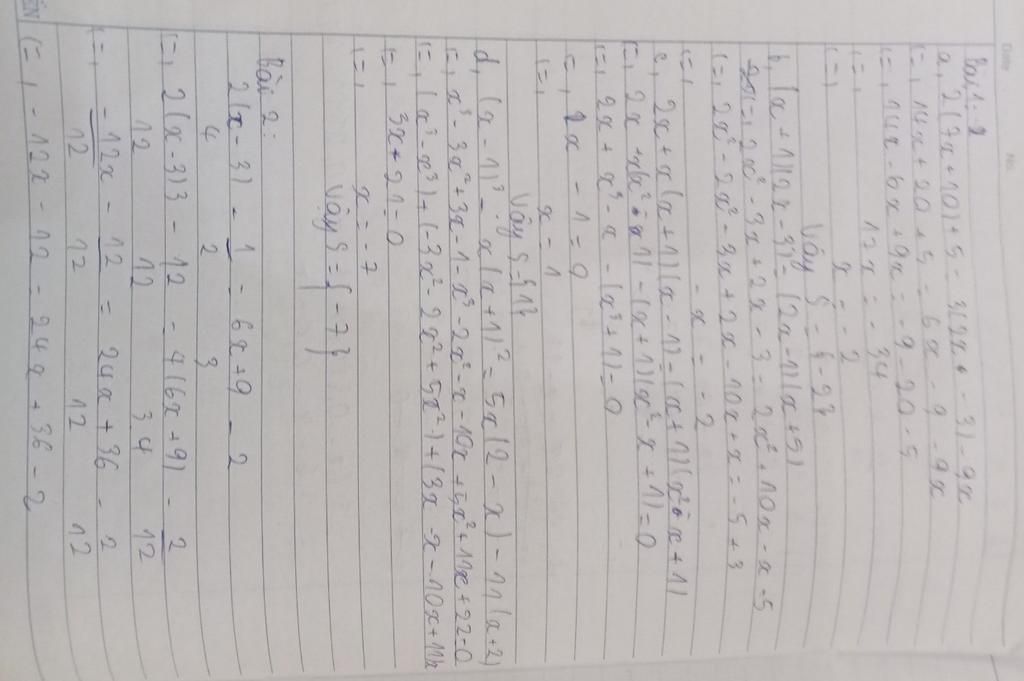 Date No.
Bài 1: 2
a, 2(7x+10)+5 = 3(2x - 3) - 9x
(=, 14x + 20 + 5 = 6x - 9 - 9x
(=, 14x - 6x + 9x = -9 - 20 - 5
(=, 17x = - 34
(=, x = - 2
Vậy S = {-2}
b, (x+1)(2x-3) = (2x-1)(x+5)
(=, 2x² - 3x + 2x - 3 = 2x² + 10x - x - 5
(=, 2x² - 2x² - 3x + 2x - 10x + x = -5 + 3
(=, - x = - 2
c, 2x + x(x+1)(x-1) = (x+1)(x² - x + 1)
(=, 2x + x(x² - 1) - (x+1)(x² - x + 1) = 0
(=, 2x + x³ - x - (x³ + 1) = 0
(=, x - 1 = 0
(=, x = 1
Vậy S = {1}
d, (x-1)³ - x(x+1)² = 5x(2-x) - 11(x+2)
(=, x³ - 3x² + 3x - 1 - x³ - 2x² - x - 10x + 5x² + 11x + 22 = 0
(=, (x³ - x³) + (-3x² - 2x² + 5x²) + (3x - x - 10x + 11x
(=, 3x + 21 = 0
(=, x = - 7
Vậy S = { - 7 }
Bài 2:
2(x-3) - 1 = 6x+9 - 2
4 2 3
(=, 2(x-3)3 - 12 = 4(6x+9) - 2
12 12 34 12
(=, -12x - 12 = 24x + 36 - 2
12 12 12 12
(=, - 12x - 12 = 24x + 36 - 2